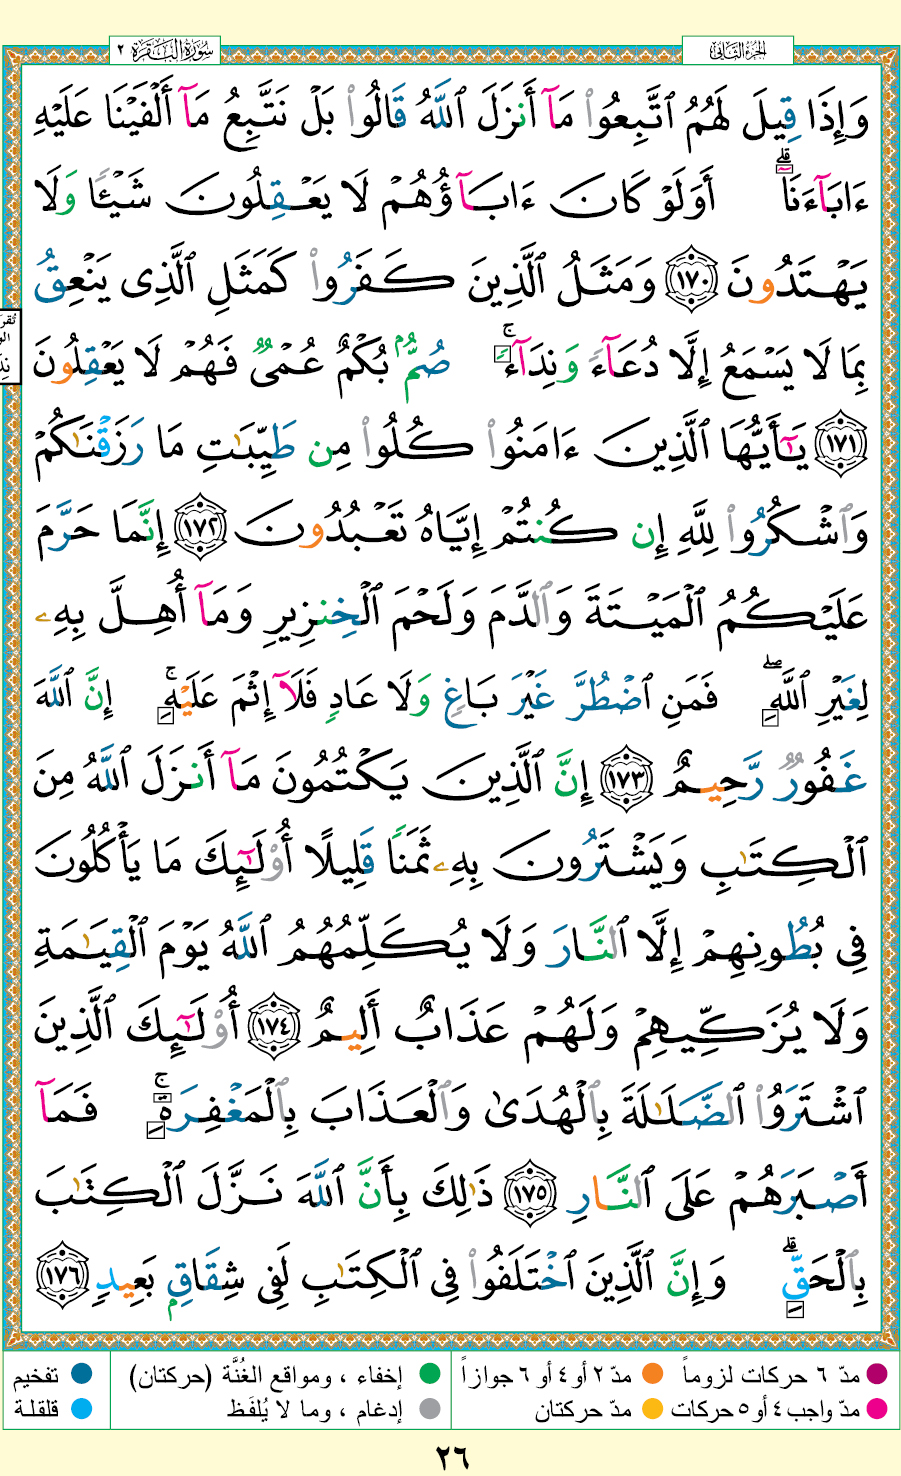 سُورَةُ البَقَرَةِ ٢
الجُزءُ الثَّانِي
وَإِذَا قِيلَ لَهُمُ ٱتَّبِعُوا۟ مَآ أَنزَلَ ٱللَّهُ قَالُوا۟ بَلْ نَتَّبِعُ مَآ أَلْفَيْنَا عَلَيْهِ
ءَابَآءَنَآ ۗ أَوَلَوْ كَانَ ءَابَآؤُهُمْ لَا يَعْقِلُونَ شَيْـًٔا وَلَا
يَهْتَدُونَ ١٧٠ وَمَثَلُ ٱلَّذِينَ كَفَرُوا۟ كَمَثَلِ ٱلَّذِى يَنْعِقُ
بِمَا لَا يَسْمَعُ إِلَّا دُعَآءً وَنِدَآءً ۚ صُمٌّۢ بُكْمٌ عُمْىٌ فَهُمْ لَا يَعْقِلُونَ
١٧١ يَـٰٓأَيُّهَا ٱلَّذِينَ ءَامَنُوا۟ كُلُوا۟ مِن طَيِّبَـٰتِ مَا رَزَقْنَـٰكُمْ
وَٱشْكُرُوا۟ لِلَّهِ إِن كُنتُمْ إِيَّاهُ تَعْبُدُونَ ١٧٢ إِنَّمَا حَرَّمَ
عَلَيْكُمُ ٱلْمَيْتَةَ وَٱلدَّمَ وَلَحْمَ ٱلْخِنزِيرِ وَمَآ أُهِلَّ بِهِۦ
لِغَيْرِ ٱللَّهِ ۖ فَمَنِ ٱضْطُرَّ غَيْرَ بَاغٍ وَلَا عَادٍ فَلَآ إِثْمَ عَلَيْهِ ۚ إِنَّ ٱللَّهَ
غَفُورٌ رَّحِيمٌ ١٧٣ إِنَّ ٱلَّذِينَ يَكْتُمُونَ مَآ أَنزَلَ ٱللَّهُ مِنَ
ٱلْكِتَـٰبِ وَيَشْتَرُونَ بِهِۦ ثَمَنًا قَلِيلًا أُو۟لَـٰٓئِكَ مَا يَأْكُلُونَ
فِى بُطُونِهِمْ إِلَّا ٱلنَّارَ وَلَا يُكَلِّمُهُمُ ٱللَّهُ يَوْمَ ٱلْقِيَـٰمَةِ
وَلَا يُزَكِّيهِمْ وَلَهُمْ عَذَابٌ أَلِيمٌ ١٧٤ أُو۟لَـٰٓئِكَ ٱلَّذِينَ
ٱشْتَرَوُا۟ ٱلضَّلَـٰلَةَ بِٱلْهُدَىٰ وَٱلْعَذَابَ بِٱلْمَغْفِرَةِ ۚ فَمَآ
أَصْبَرَهُمْ عَلَى ٱلنَّارِ ١٧٥ ذَٰلِكَ بِأَنَّ ٱللَّهَ نَزَّلَ ٱلْكِتَـٰبَ
بِٱلْحَقِّ ۗ وَإِنَّ ٱلَّذِينَ ٱخْتَلَفُوا۟ فِى ٱلْكِتَـٰبِ لَفِى شِقَاقٍۭ بَعِيدٍ ١٧٦
مدّ ٦ حركات لزوماً مدّ ٢ أو ٤ أو ٦ جوازاً إخفاء ، ومواقع الغُنَّة (حركتان) تفخيم
مدّ واجب ٤ أو ٥ حركات مدّ حركتان إدغام ، وما لا يُلفَظ قلقلة
٢٦